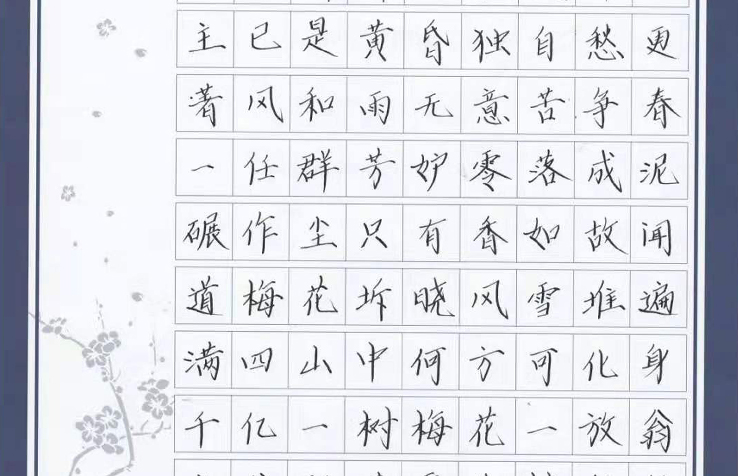 主已是黄昏独自愁更
著风和雨无意苦争春
一任群芳妒零落成泥
碾作尘只有香如故闻
道梅花坼晓风雪堆遍
满四山中何方可化身
千亿一树梅花一放翁